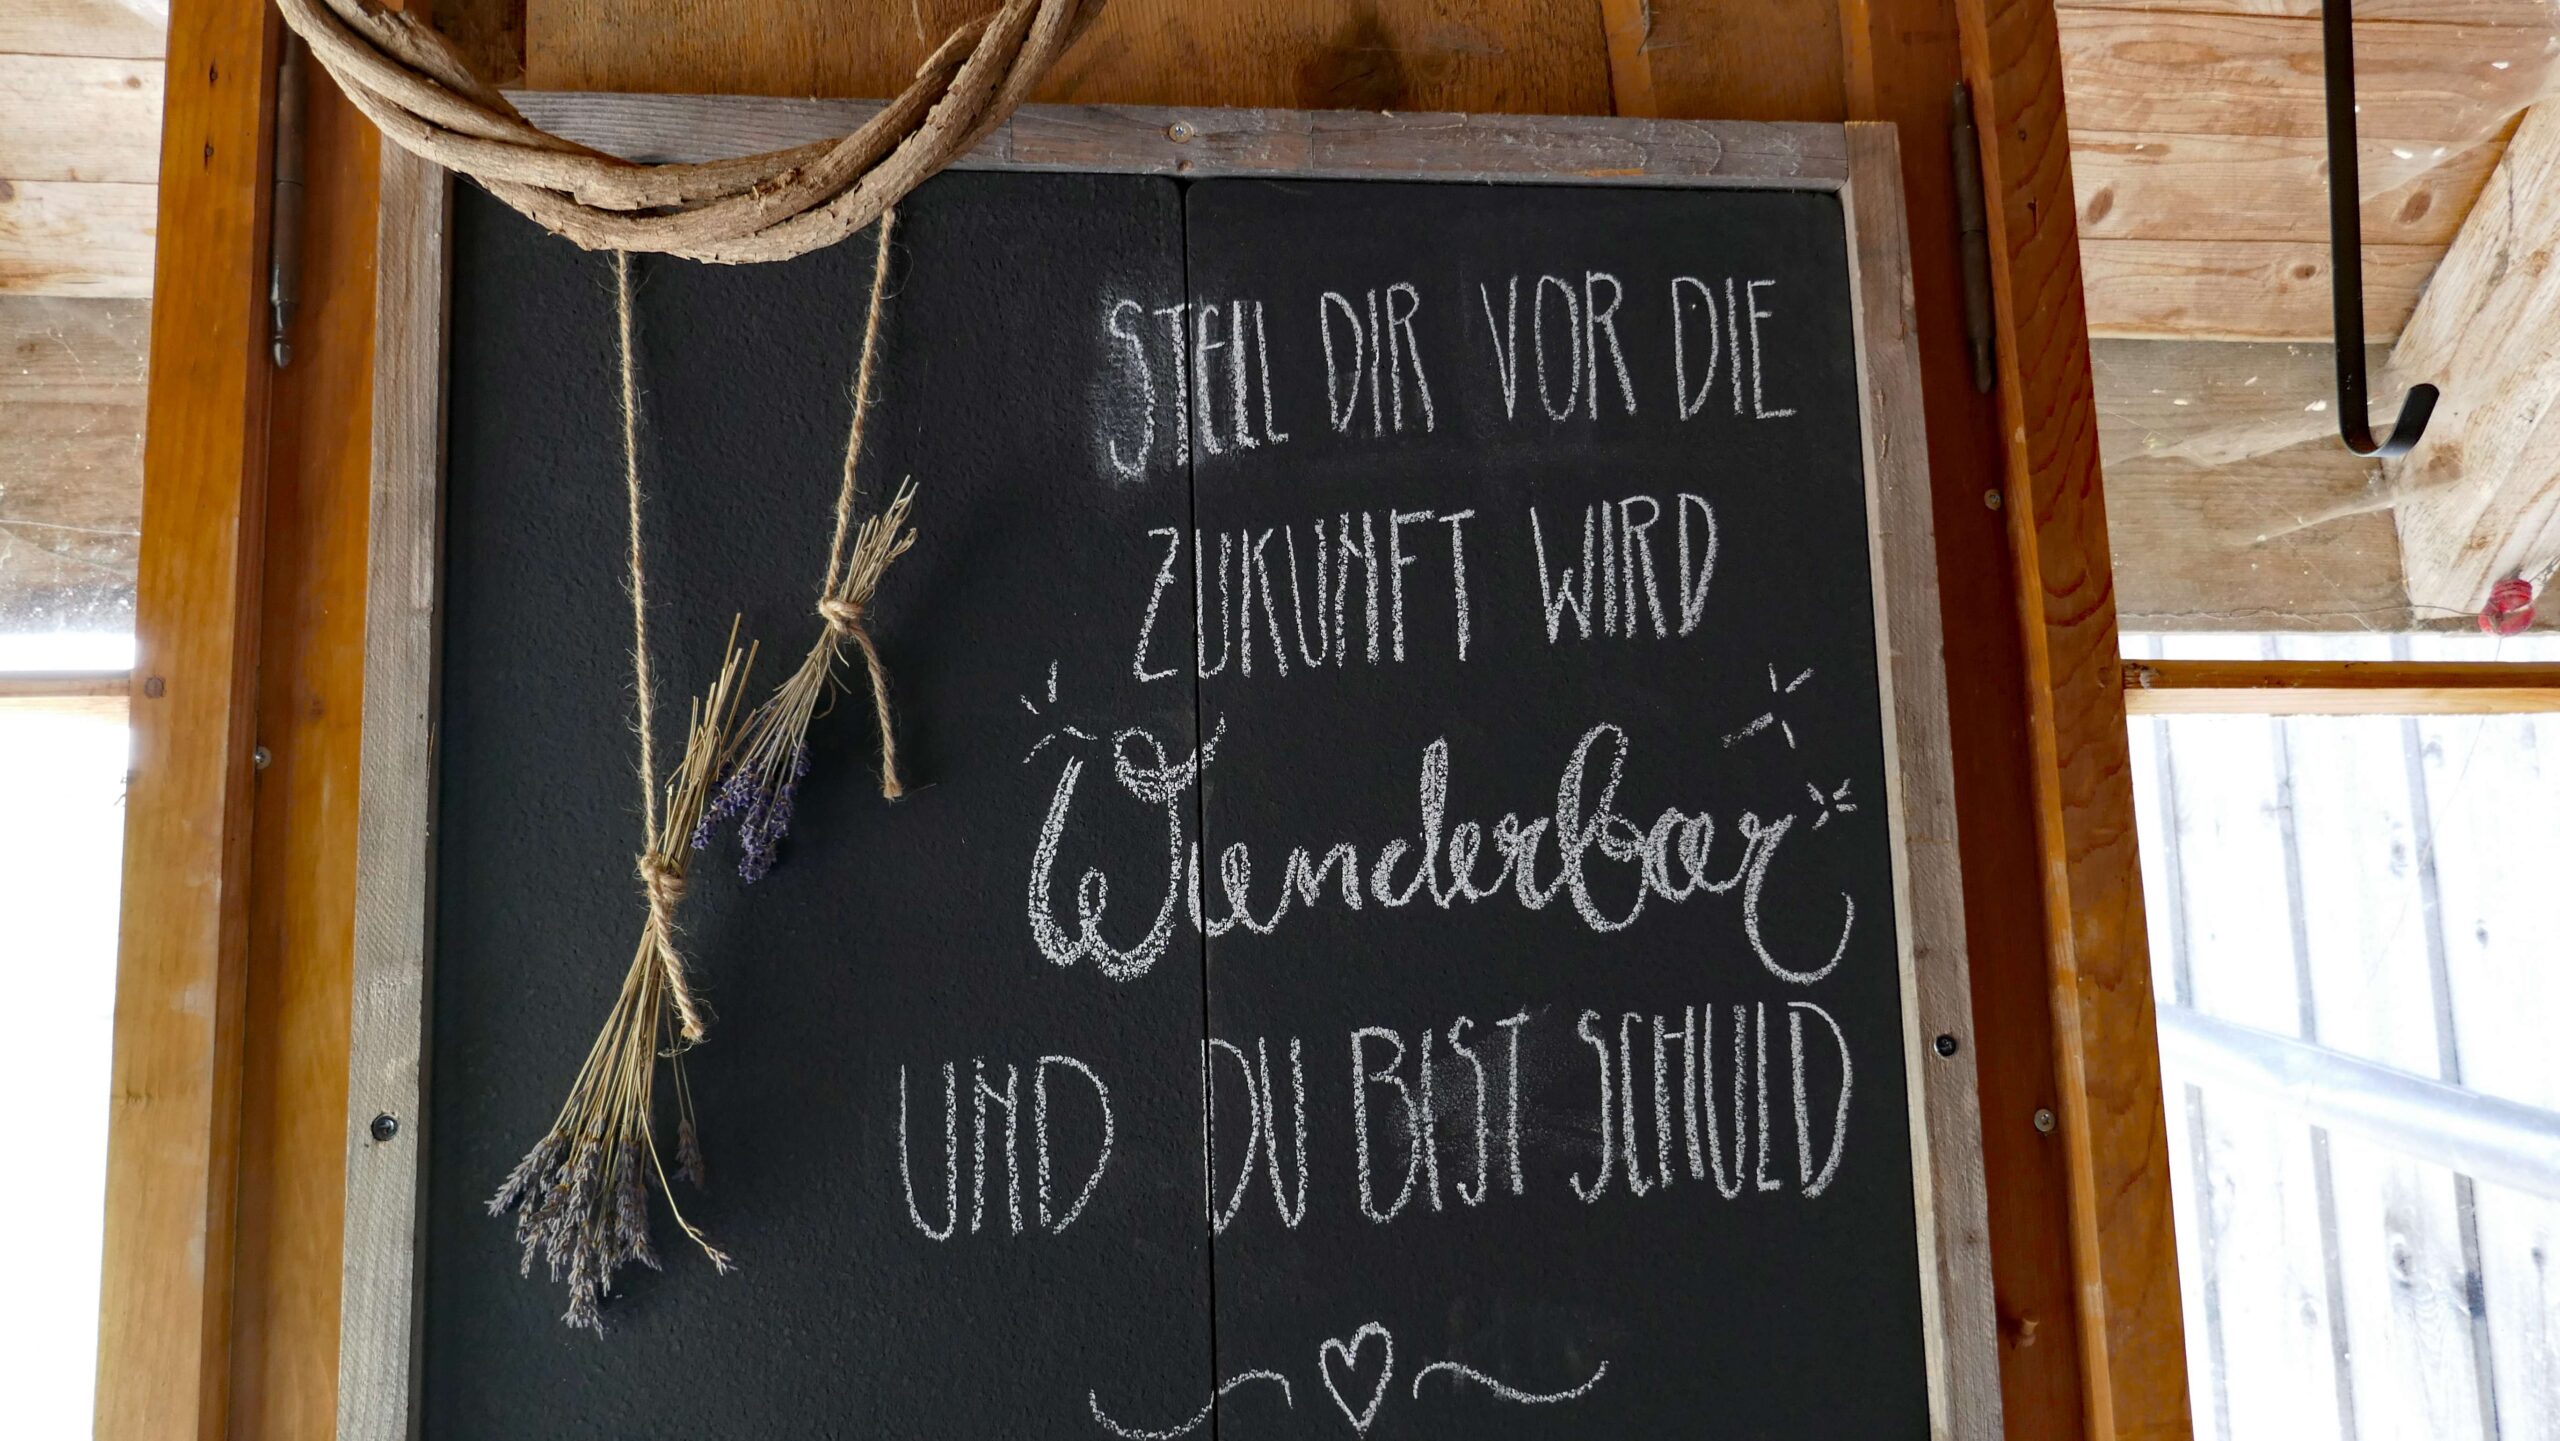 STELL DIR VOR DIE
ZUKUNFT WIRD
Wunderbar
UND DU BIST SCHULD